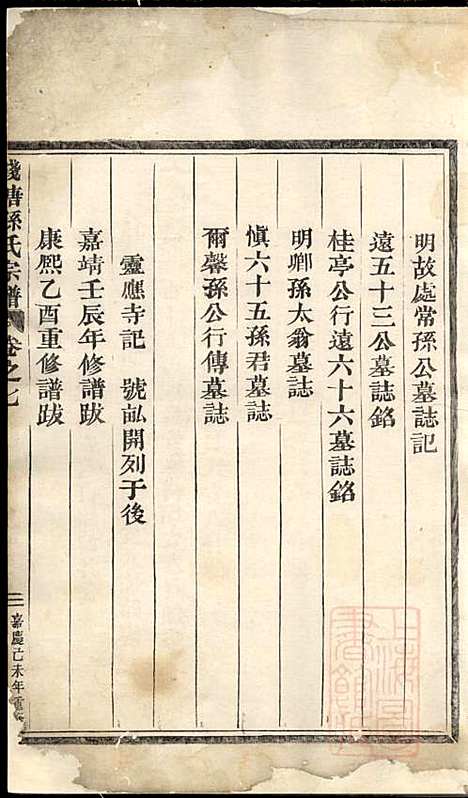 明故處常孫公墓誌記
遠五十三公墓誌銘
桂亭公行遠六十六墓誌銘
明卿孫太翁墓誌
愼六十五孫君墓誌
爾馨孫公行傳墓誌
靈應寺記 號畝開列于後
嘉靖壬辰年修譜跋
康熙乙酉重修譜跋
錢唐孫氏宗譜 卷之七 二 嘉慶己未年重
上海圖書館藏